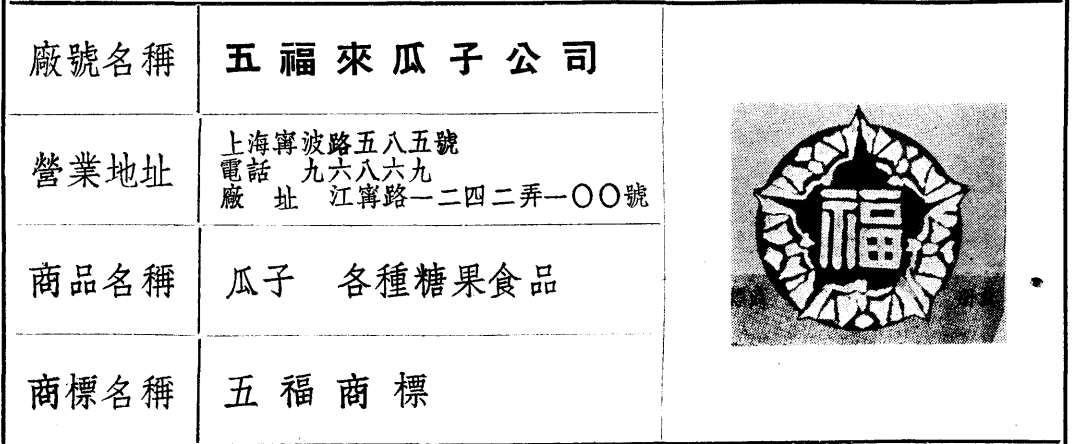 廠號名稱
五福來瓜子公司
營業地址
上海甯波路五八五號
電話 九六八六九
廠 址 江甯路一二四二弄一〇〇號
商品名稱
瓜子 各種糖果食品
商標名稱
五福商標
福